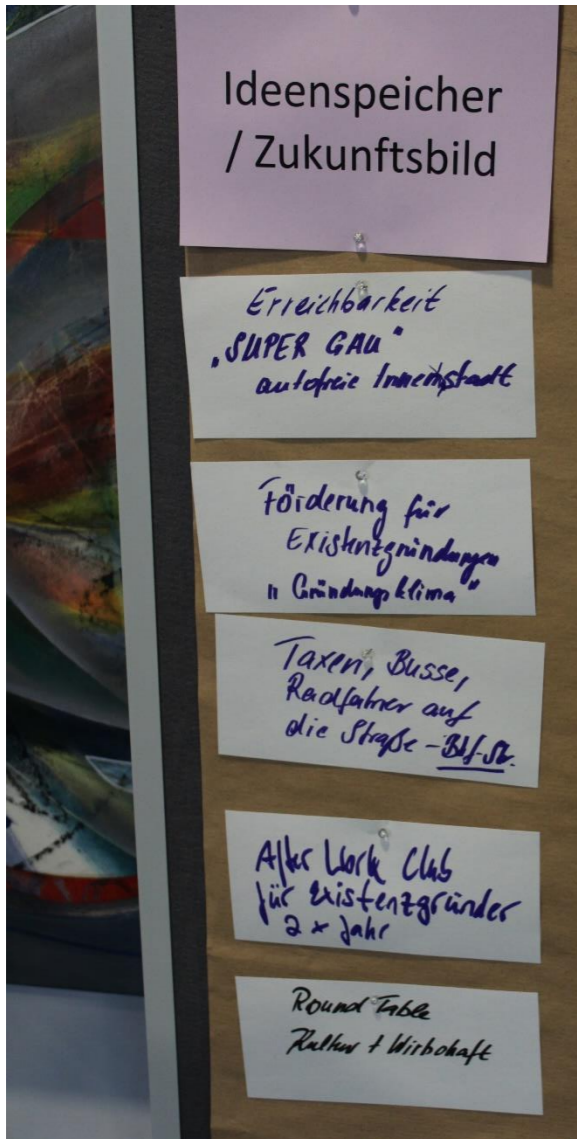 Ideenspeicher
/ Zukunftsbild
Erreichbarkeit
"SUPER GAU"
autofreie Innenstadt
Förderung für
Existenzgründungen
"Gründungsklima"
Taxen, Busse,
Radfahrer auf
die Straße - Bhf-Str.
After Work Club
für Existenzgründer
2 x Jahr
Round Table
Kultur + Wirtschaft